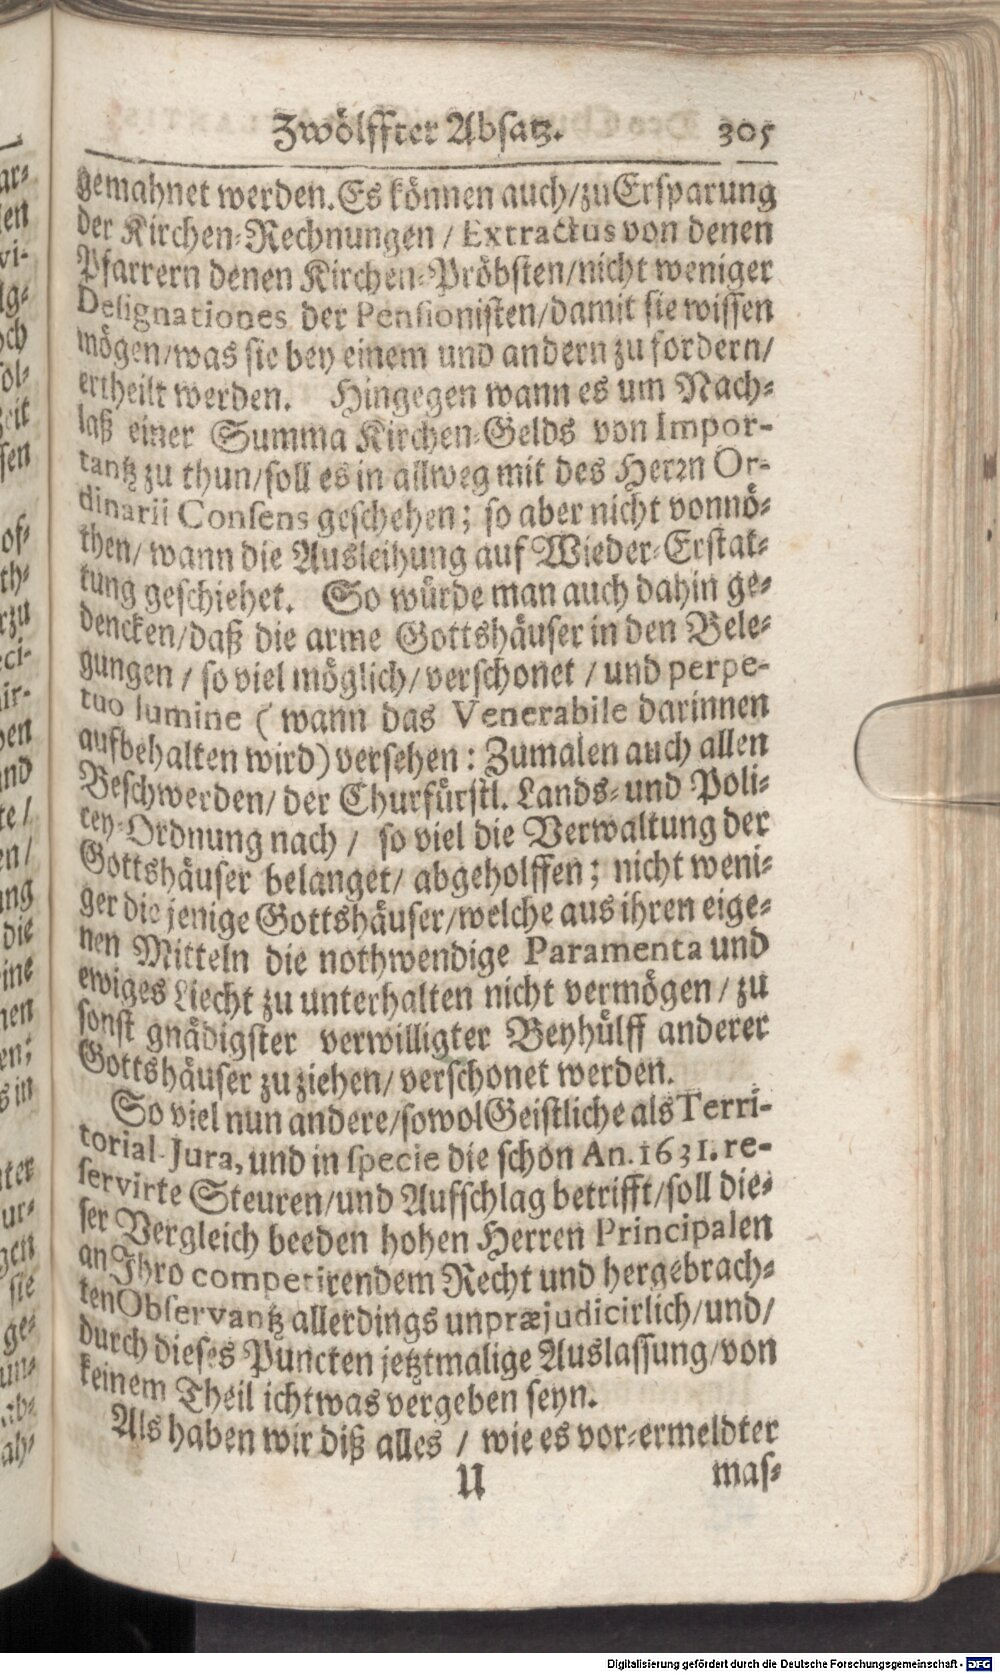 Zwölffter Absatz. 305
gemahnet werden. Es können auch/zu Ersparung
der Kirchen-Rechnungen / Extractus von denen
Pfarrern denen Kirchen-Pröbsten/nicht weniger
Designationes der Pensionisten/damit sie wissen
mögen/was sie bey einem und andern zu fordern/
ertheilt werden. Hingegen wann es um Nach-
laß einer Summa Kirchen-Gelds von Impor-
tantz zu thun/soll es in allweg mit des Herrn Or-
dinarii Consens geschehen; so aber nicht vonnö-
then/ wann die Ausleihung auf Wieder-Erstat-
tung geschiehet. So würde man auch dahin ge-
dencken/daß die arme Gottshäuser in den Bele-
gungen / so viel möglich/ verschonet / und perpe-
tuo lumine ( wann das Venerabile darinnen
aufbehalten wird) versehen: Zumalen auch allen
Beschwerden/ der Churfürstl. Lands- und Poli-
cey-Ordnung nach / so viel die Verwaltung der
Gottshäuser belanget/ abgeholffen; nicht weni-
ger die jenige Gottshäuser/welche aus ihren eige-
nen Mitteln die nothwendige Paramenta und
ewiges Liecht zu unterhalten nicht vermögen / zu
sonst gnädigster verwilligter Beyhülff anderer
Gottshäuser zu ziehen/ verschonet werden.
So viel nun andere/sowol Geistliche als Terri-
torial-Jura, und in specie die schon An. 1631. re-
servirte Steuren/und Aufschlag betrifft/soll die-
ser Vergleich beeden hohen Herren Principalen
an Ihro competirendem Recht und hergebrach-
ten Observantz allerdings unpræjudicirlich/und/
durch dieses Puncten jetztmalige Auslassung/von
keinem Theil ichtwas vergeben seyn.
Als haben wir diß alles / wie es vor-ermeldter
U mas-
Digitalisierung gefördert durch die Deutsche Forschungsgemeinschaft - DFG